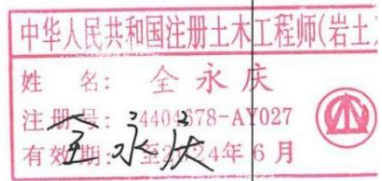 中华人民共和国注册土木工程师(岩土)
姓 名: 全永庆
注册号: 4404878-AY027
有效期: 至2024年6月
全永庆